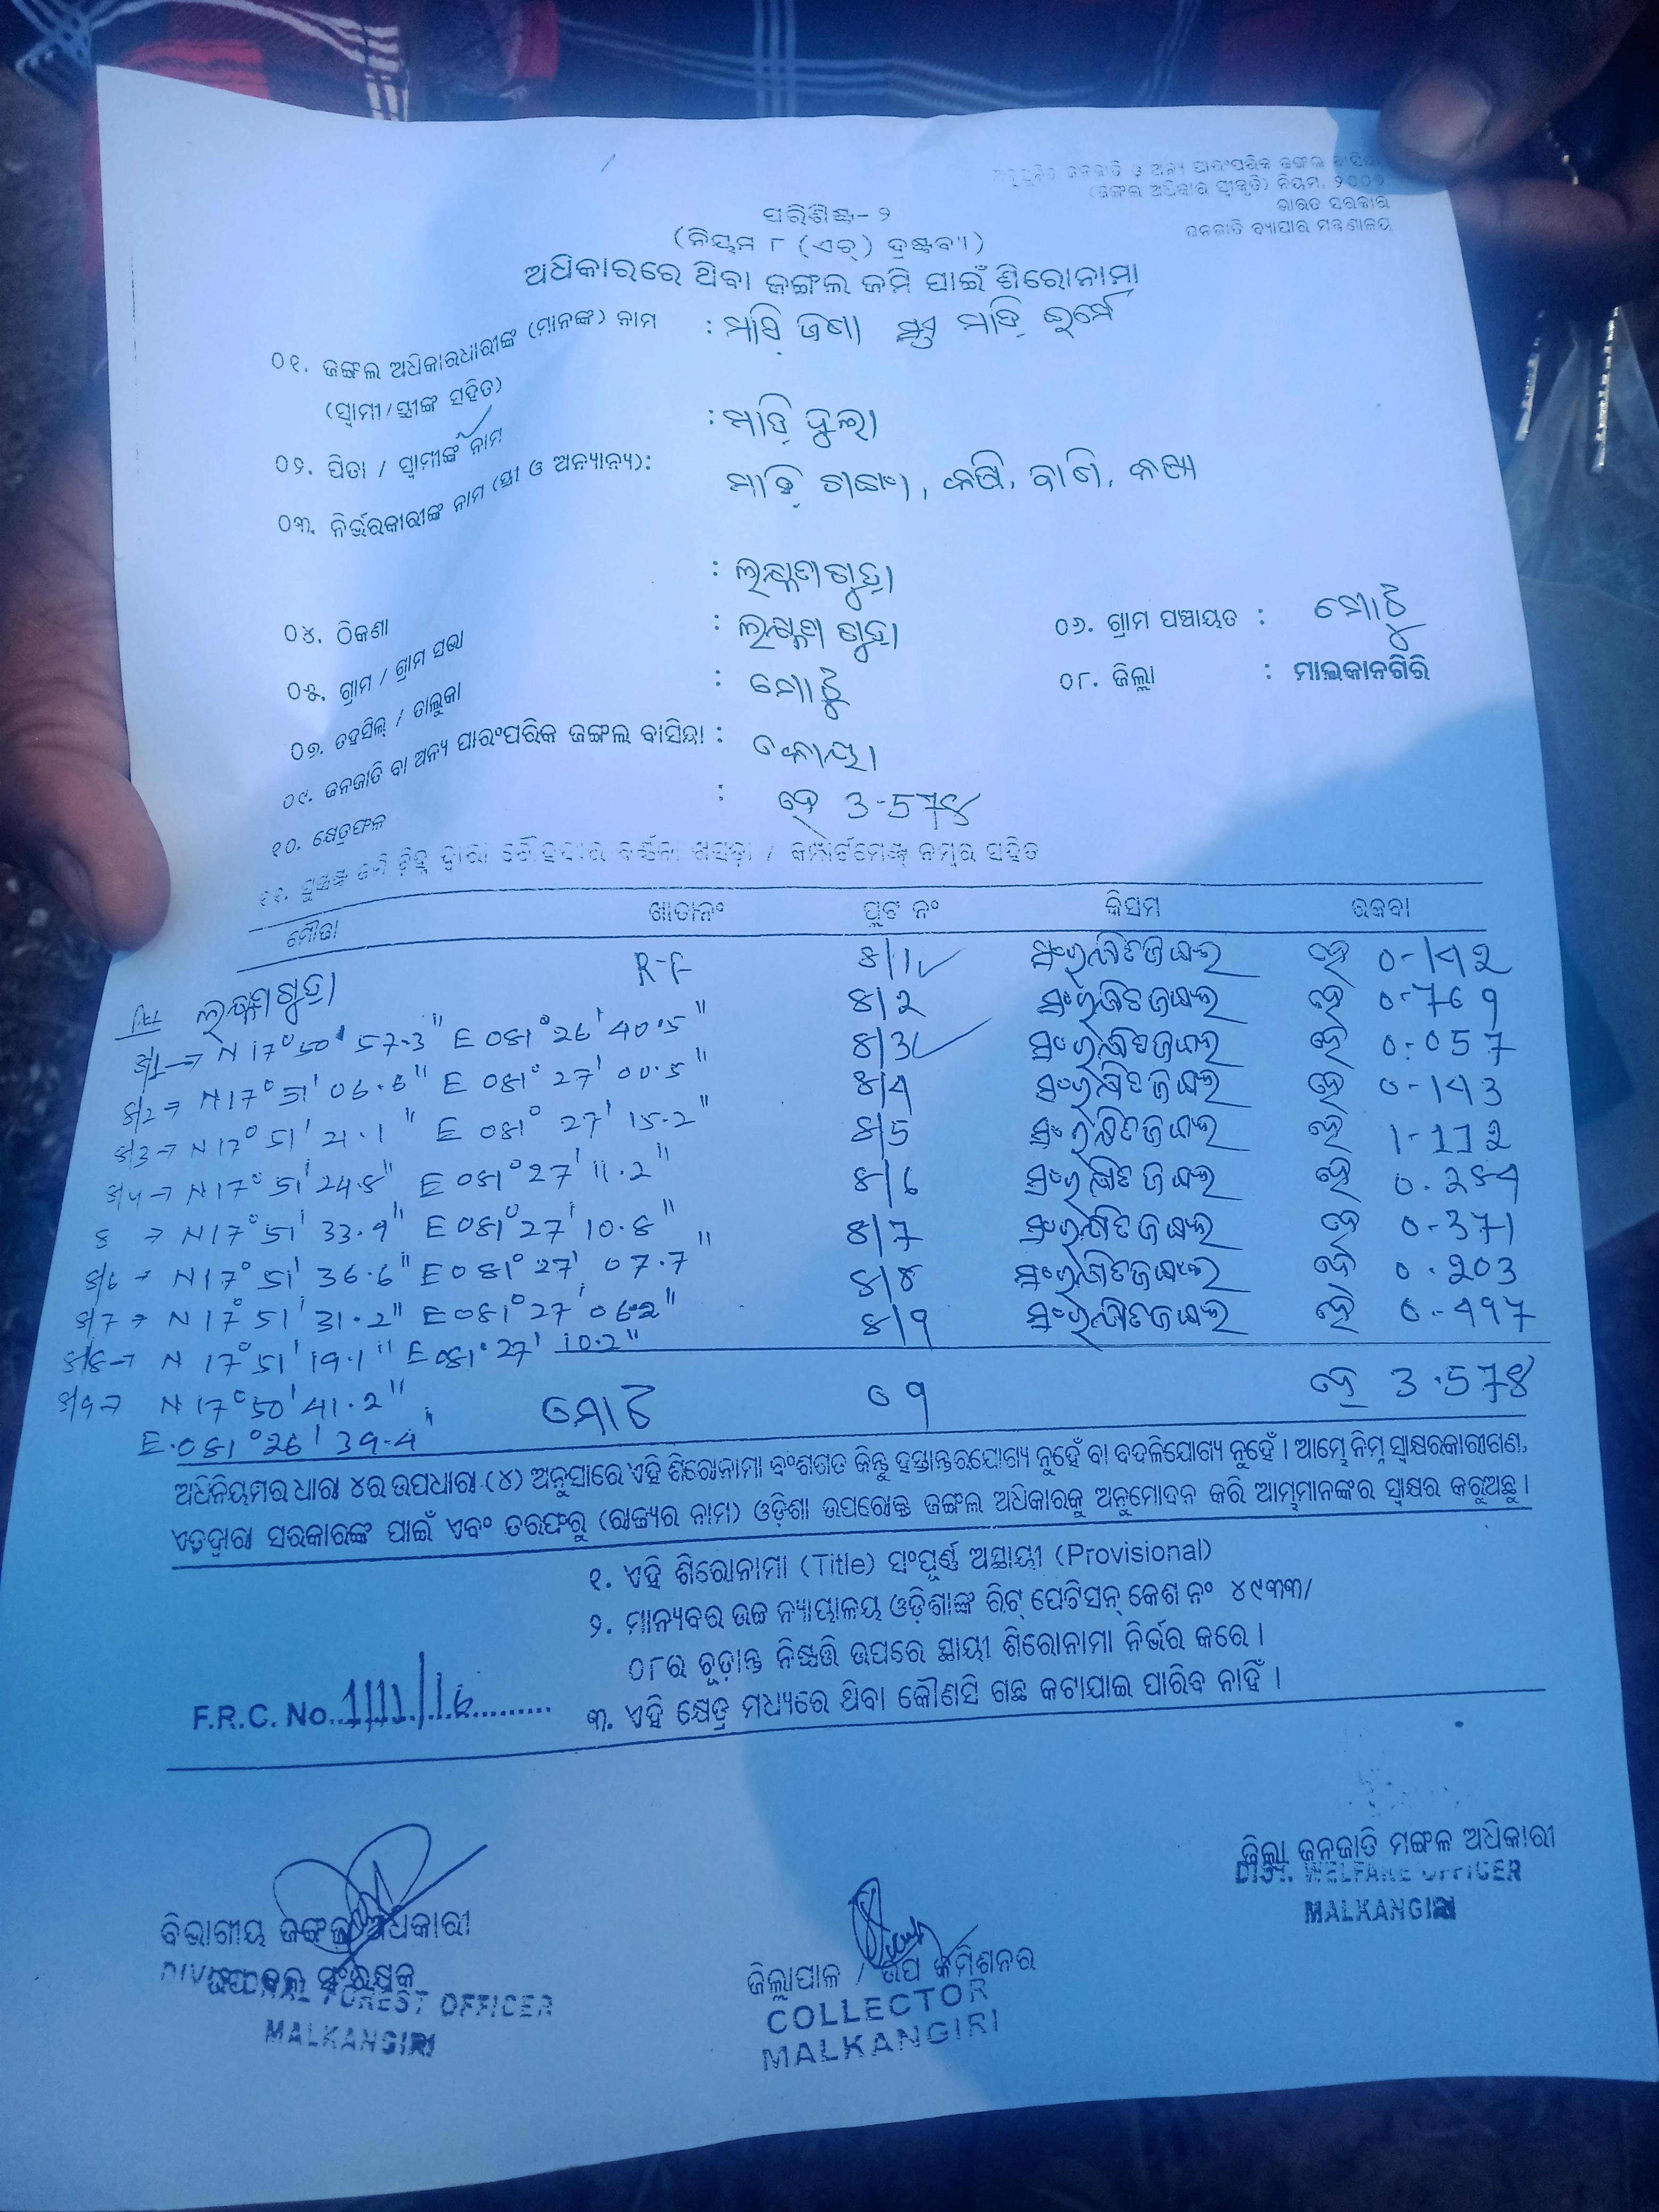 ଅନୁସୂଚିତ ଜନଜାତି ଓ ଅନ୍ୟ ପାରଂପରିକ ଜଙ୍ଗଲ ବାସିନ୍ଦା
(ଜଙ୍ଗଲ ଅଧିକାର ସ୍ୱୀକୃତି) ନିୟମ, ୨୦୦୭
ଭାରତ ସରକାର
ଜନଜାତି ବ୍ୟାପାର ମନ୍ତ୍ରଣାଳୟ
ପରିଶିଷ୍ଟ- ୨
(ନିୟମ ୮ (ଏଚ୍) ଦ୍ରଷ୍ଟବ୍ୟ)
ଅଧିକାରରେ ଥିବା ଜଙ୍ଗଲ ଜମି ପାଇଁ ଶିରୋନାମା
୦୧. ଜଙ୍ଗଲ ଅଧିକାରଧାରୀଙ୍କ (ମାନଙ୍କ) ନାମ : ମାଡ଼ି
(ସ୍ୱାମୀ/ସ୍ତ୍ରୀଙ୍କ ସହିତ)
୦୨. ପିତା / ସ୍ୱାମୀଙ୍କ ନାମ : ମାଡ଼ି
୦୩. ନିର୍ଭରକାରୀଙ୍କ ନାମ (ସ୍ତ୍ରୀ ଓ ଅନ୍ୟାନ୍ୟ): ମାଡ଼ି
୦୪. ଠିକଣା : ଲକ୍ଷ୍ମଣଗୁଡ଼ା
୦୫. ଗ୍ରାମ / ଗ୍ରାମ ସଭା : ଲକ୍ଷ୍ମଣଗୁଡ଼ା ୦୬. ଗ୍ରାମ ପଞ୍ଚାୟତ : ମୋଟୁ
୦୭. ତହସିଲ୍ / ତାଲୁକା : ମୋଟୁ ୦୮. ଜିଲ୍ଲା : ମାଲକାନଗିରି
୦୯. ଜନଜାତି ବା ଅନ୍ୟ ପାରଂପରିକ ଜଙ୍ଗଲ ବାସିନ୍ଦା : କୋୟା
୧୦. କ୍ଷେତ୍ରଫଳ : ହେ 3-578
ଖସଡ଼ା / କମ୍ପାର୍ଟମେଣ୍ଟ ନମ୍ବର ସହିତ
ମୌଜା ଖାତା ନଂ ପ୍ଲଟ ନଂ କିସମ ରକବା
ଲକ୍ଷ୍ମଣଗୁଡ଼ା R-F 8/1 ସଂରକ୍ଷିତ ଜଙ୍ଗଲ ହେ 0-142
8/1→ N 17° 50' 57.3" E 081° 26' 40.5" 8/2 ସଂରକ୍ଷିତ ଜଙ୍ଗଲ ହେ 0-769
8/2→ N 17° 51' 06.6" E 081° 27' 00.5" 8/3 ସଂରକ୍ଷିତ ଜଙ୍ଗଲ ହେ 0-057
8/3→ N 17° 51' 21.1" E 081° 27' 15.2" 8/4 ସଂରକ୍ଷିତ ଜଙ୍ଗଲ ହେ 0-143
8/4→ N 17° 51' 24.8" E 081° 27' 11.2" 8/5 ସଂରକ୍ଷିତ ଜଙ୍ଗଲ ହେ 1-112
8 → N 17° 51' 33.9" E 081° 27' 10.8" 8/6 ସଂରକ୍ଷିତ ଜଙ୍ଗଲ ହେ 0.284
8/6→ N 17° 51' 36.6" E 081° 27' 07.7" 8/7 ସଂରକ୍ଷିତ ଜଙ୍ଗଲ ହେ 0-371
8/7→ N 17° 51' 31.2" E 081° 27' 06.2" 8/8 ସଂରକ୍ଷିତ ଜଙ୍ଗଲ ହେ 0.203
8/8→ N 17° 51' 19.1" E 081° 27' 10.2" 8/9 ସଂରକ୍ଷିତ ଜଙ୍ଗଲ ହେ 0-497
8/9→ N 17° 50' 41.2" ମୋଟ 09 ହେ 3.578
E.081° 26' 39.4"
ଅଧିନିୟମର ଧାରା ୪ର ଉପଧାରା (୪) ଅନୁସାରେ ଏହି ଶିରୋନାମା ବଂଶଗତ କିନ୍ତୁ ହସ୍ତାନ୍ତରଯୋଗ୍ୟ ନୁହେଁ ବା ବଦଳିଯୋଗ୍ୟ ନୁହେଁ । ଆମ୍ଭେ ନିମ୍ନ ସ୍ୱାକ୍ଷରକାରୀଗଣ,
ଏତଦ୍ୱାରା ସରକାରଙ୍କ ପାଇଁ ଏବଂ ତରଫରୁ (ରାଜ୍ୟର ନାମ) ଓଡ଼ିଶା ଉପରୋକ୍ତ ଜଙ୍ଗଲ ଅଧିକାରକୁ ଅନୁମୋଦନ କରି ଆମ୍ଭମାନଙ୍କର ସ୍ୱାକ୍ଷର କରୁଅଛୁ ।
୧. ଏହି ଶିରୋନାମା (Title) ସଂପୂର୍ଣ୍ଣ ଅସ୍ଥାୟୀ (Provisional)
୨. ମାନ୍ୟବର ଉଚ୍ଚ ନ୍ୟାୟାଳୟ ଓଡ଼ିଶାଙ୍କ ରିଟ୍ ପେଟିସନ୍ କେଶ ନଂ ୪୯୩୩/
୦୮ର ଚୂଡ଼ାନ୍ତ ନିଷ୍ପତ୍ତି ଉପରେ ସ୍ଥାୟୀ ଶିରୋନାମା ନିର୍ଭର କରେ ।
F.R.C. No. 1/11/16 ୩. ଏହି କ୍ଷେତ୍ର ମଧ୍ୟରେ ଥିବା କୌଣସି ଗଛ କଟାଯାଇ ପାରିବ ନାହିଁ ।
ବିଭାଗୀୟ ଜଙ୍ଗଲ ଅଧିକାରୀ
ଉପ ବନ ସଂରକ୍ଷକ
DIVISIONAL FOREST OFFICER
MALKANGIRI
ଜିଲ୍ଲାପାଳ / ଉପ କମିଶନର
COLLECTOR
MALKANGIRI
ଜିଲ୍ଲା ଜନଜାତି ମଙ୍ଗଳ ଅଧିକାରୀ
DIST. WELFARE OFFICER
MALKANGIRI